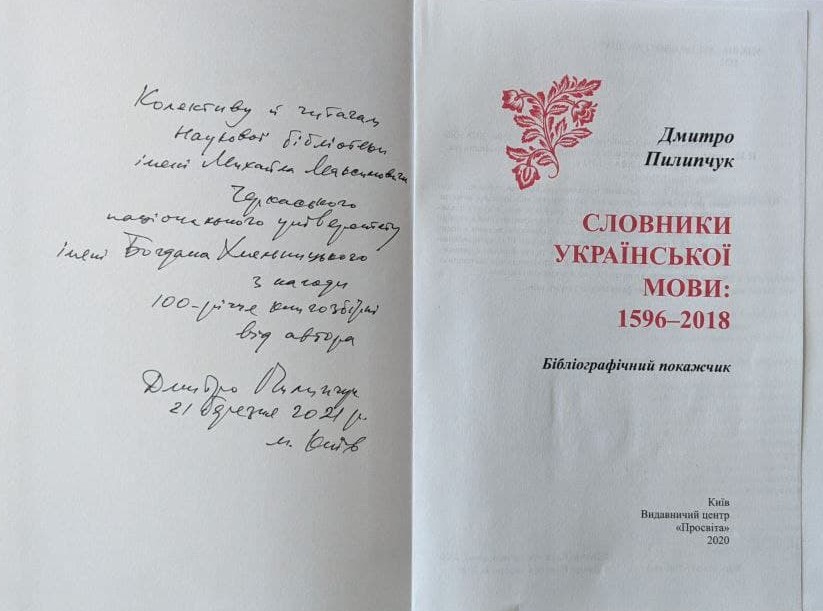 Колективу й читачам
Наукової бібліотеки
імені Михайла Максимовича
Черкаського
національного університету
імені Богдана Хмельницького
з нагоди
100-річчя книгозбірні
від автора
Дмитро Пилипчук
21 березня 2021 р.
м. Київ
Дмитро
Пилипчук
СЛОВНИКИ
УКРАЇНСЬКОЇ
МОВИ:
1596–2018
Бібліографічний покажчик
Київ
Видавничий центр
«Просвіта»
2020